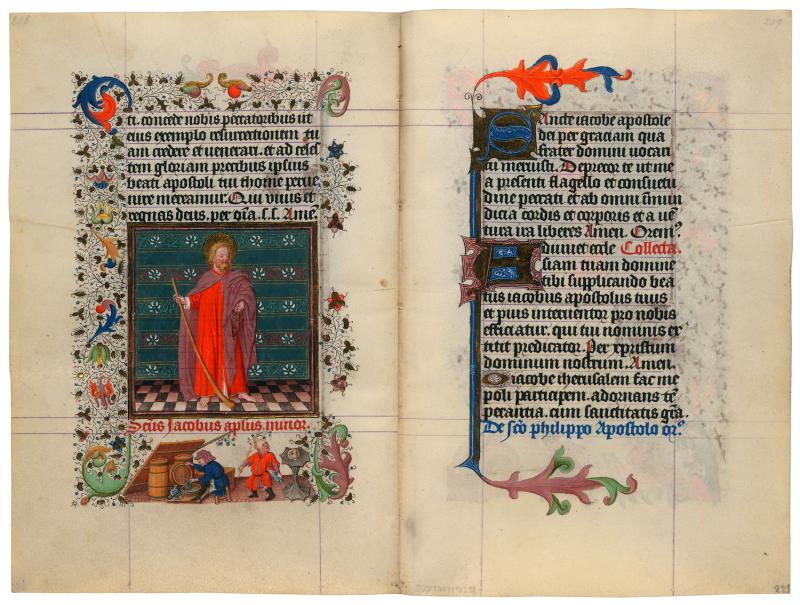 ti. concede nobis peccatoribus ut
eius exemplo resurrectionem tu
am credere et venerari. et ad celes
tem gloriam precibus ipsius
beati apostoli tui thome perve
nire mereamur. Qui vivis et
regnas deus. per oīa. s.s. Amē.
Sctūs Jacobus apl̄us minor.
Sancte iacobe apostole
dei per graciam qua
frater domini vocari
meruisti. Deprecor te ut me
a presenti flagello et consuetu
dine peccati et ab omni īmun
dicia cordis et corporis et a vē
tura ira liberes Amen. Oremꝰ.
Adiuvet eccle Collecta.
siam tuam domine
tibi supplicando bea
tus iacobus apostolus tuus
et pius interventor pro nobis
efficiatur. qui tui nominis ex
titit predicator. Per xpristum
dominum nostrum. Amen.
O iacobe iherusalem fac me
poli participem. adornans tē
perantia. cum sanctitatis grā.
De sc̄o philippo Apostolo orꝰ.